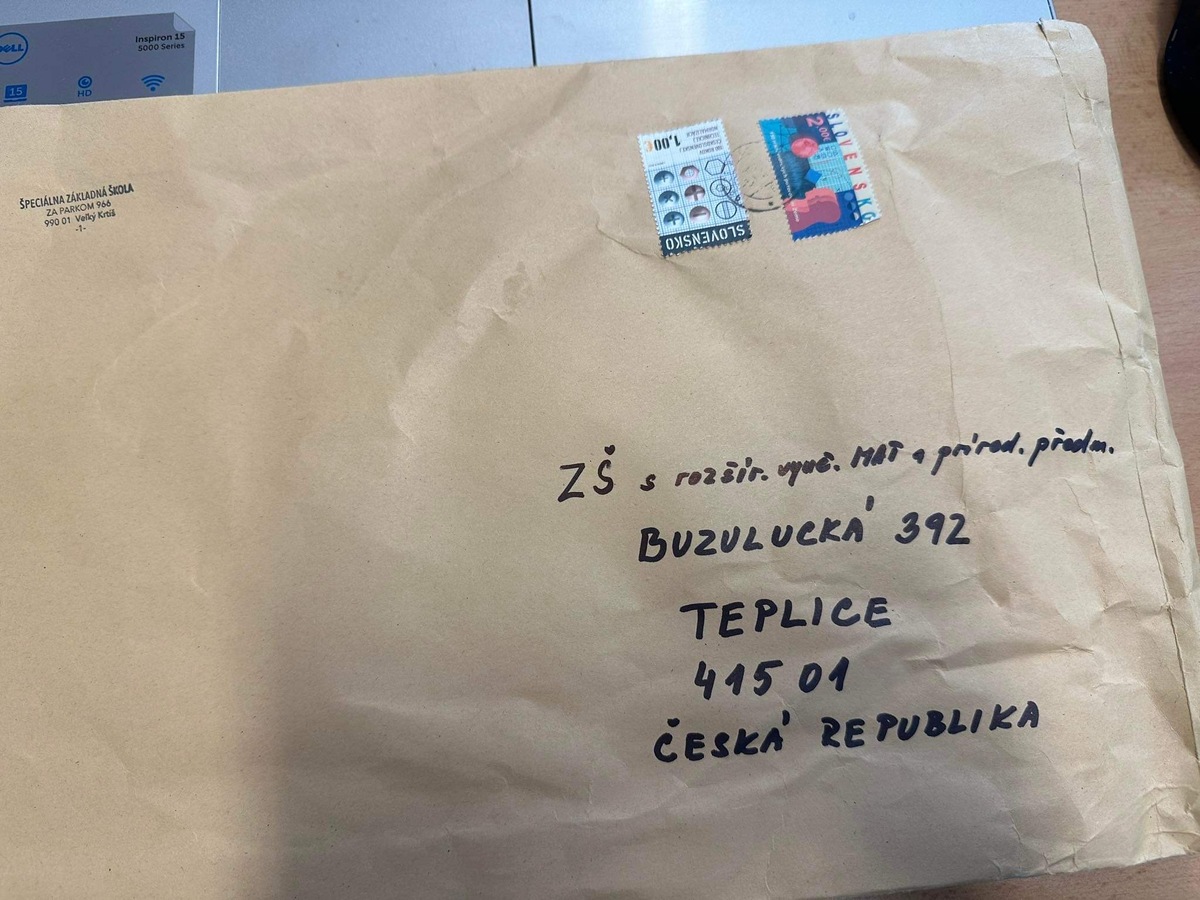 DELL
Inspiron 15
5000 Series
15
HD
ŠPECIÁLNA ZÁKLADNÁ ŠKOLA
ZA PARKOM 966
990 01 Veľký Krtíš
-1-
1,00€
100 ROKOV
ČESKOSLOVENSKEJ
TECHNICKEJ
NORMALIZÁCIE
SLOVENSKO
2,00€
SLOVENSKO
ZŠ s rozšír. vyuč. MAT a prírod. předm.
BUZULUCKÁ 392
TEPLICE
415 01
ČESKÁ REPUBLIKA